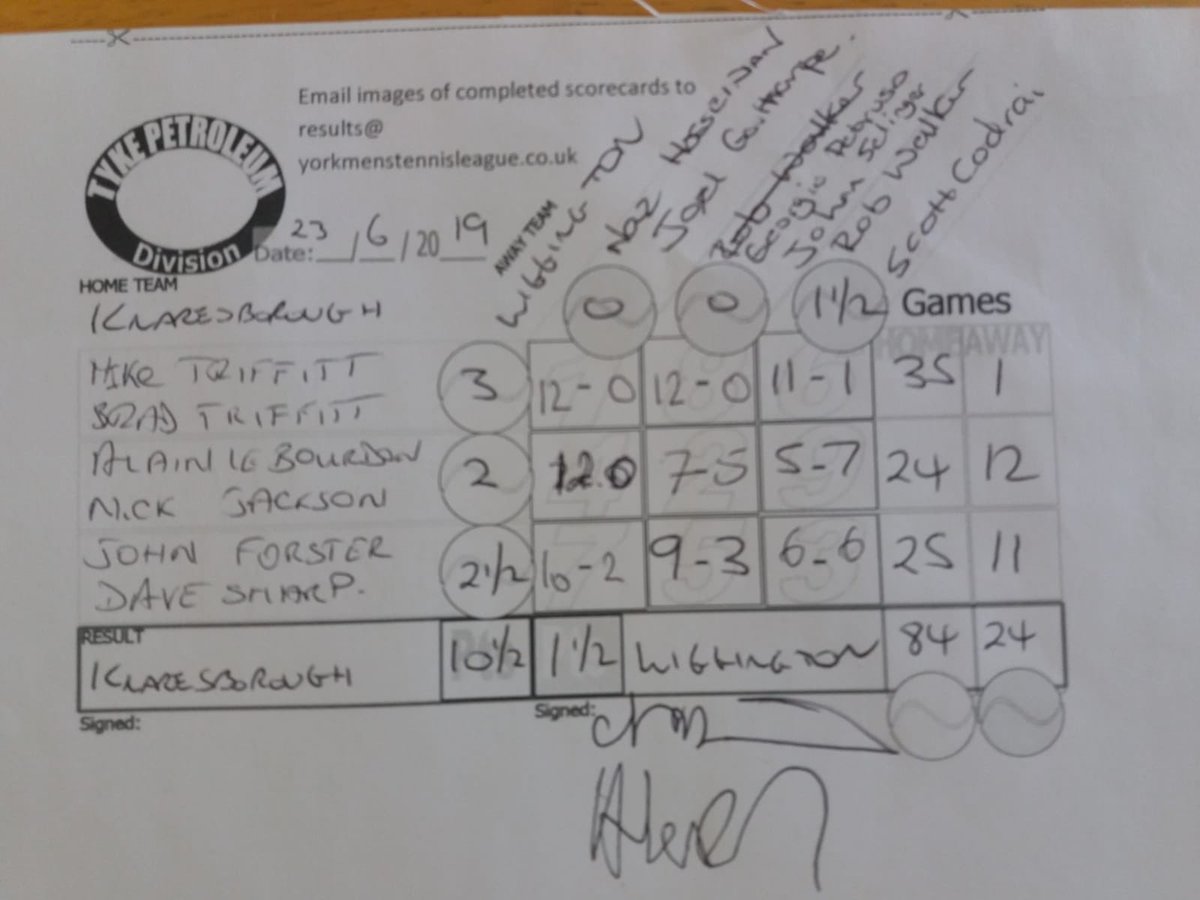 Email images of completed scorecards to
results@
yorkmenstennisleague.co.uk
TYKE PETROLEUM
Division
Date: 23/6/2019
AWAY TEAM
WIGGINGTON
Naz
Joel
Rob Walker
Georgio
John Selinger
Rob Walker
Scott Codrai
HOME TEAM
KNARESBOROUGH
0 0 1 1/2 Games
HOME AWAY
MIKE TRIFFITT
BRAD TRIFFITT
3 12-0 12-0 11-1 35 1
ALAIN LE BOURDON
NICK JACKSON
2 12.0 7-5 5-7 24 12
JOHN FORSTER
DAVE SHARP.
2 1/2 10-2 9-3 6-6 25 11
RESULT
KNARESBOROUGH 10 1/2 1 1/2 WIGGINGTON 84 24
Signed: Signed: